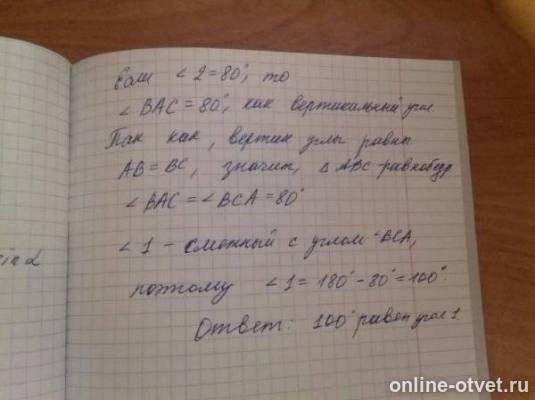 Если ∠2=80°, то
∠BAC = 80°, как вертикальный угол
Так как, вертик углы равны
AB = BC, значит, △ABC - равнобедр
∠BAC = ∠BCA = 80°
∠1 - смежный с углом BCA,
поэтому ∠1 = 180° - 80° = 100°.
Ответ: 100° равен угол 1.
online-otvet.ru